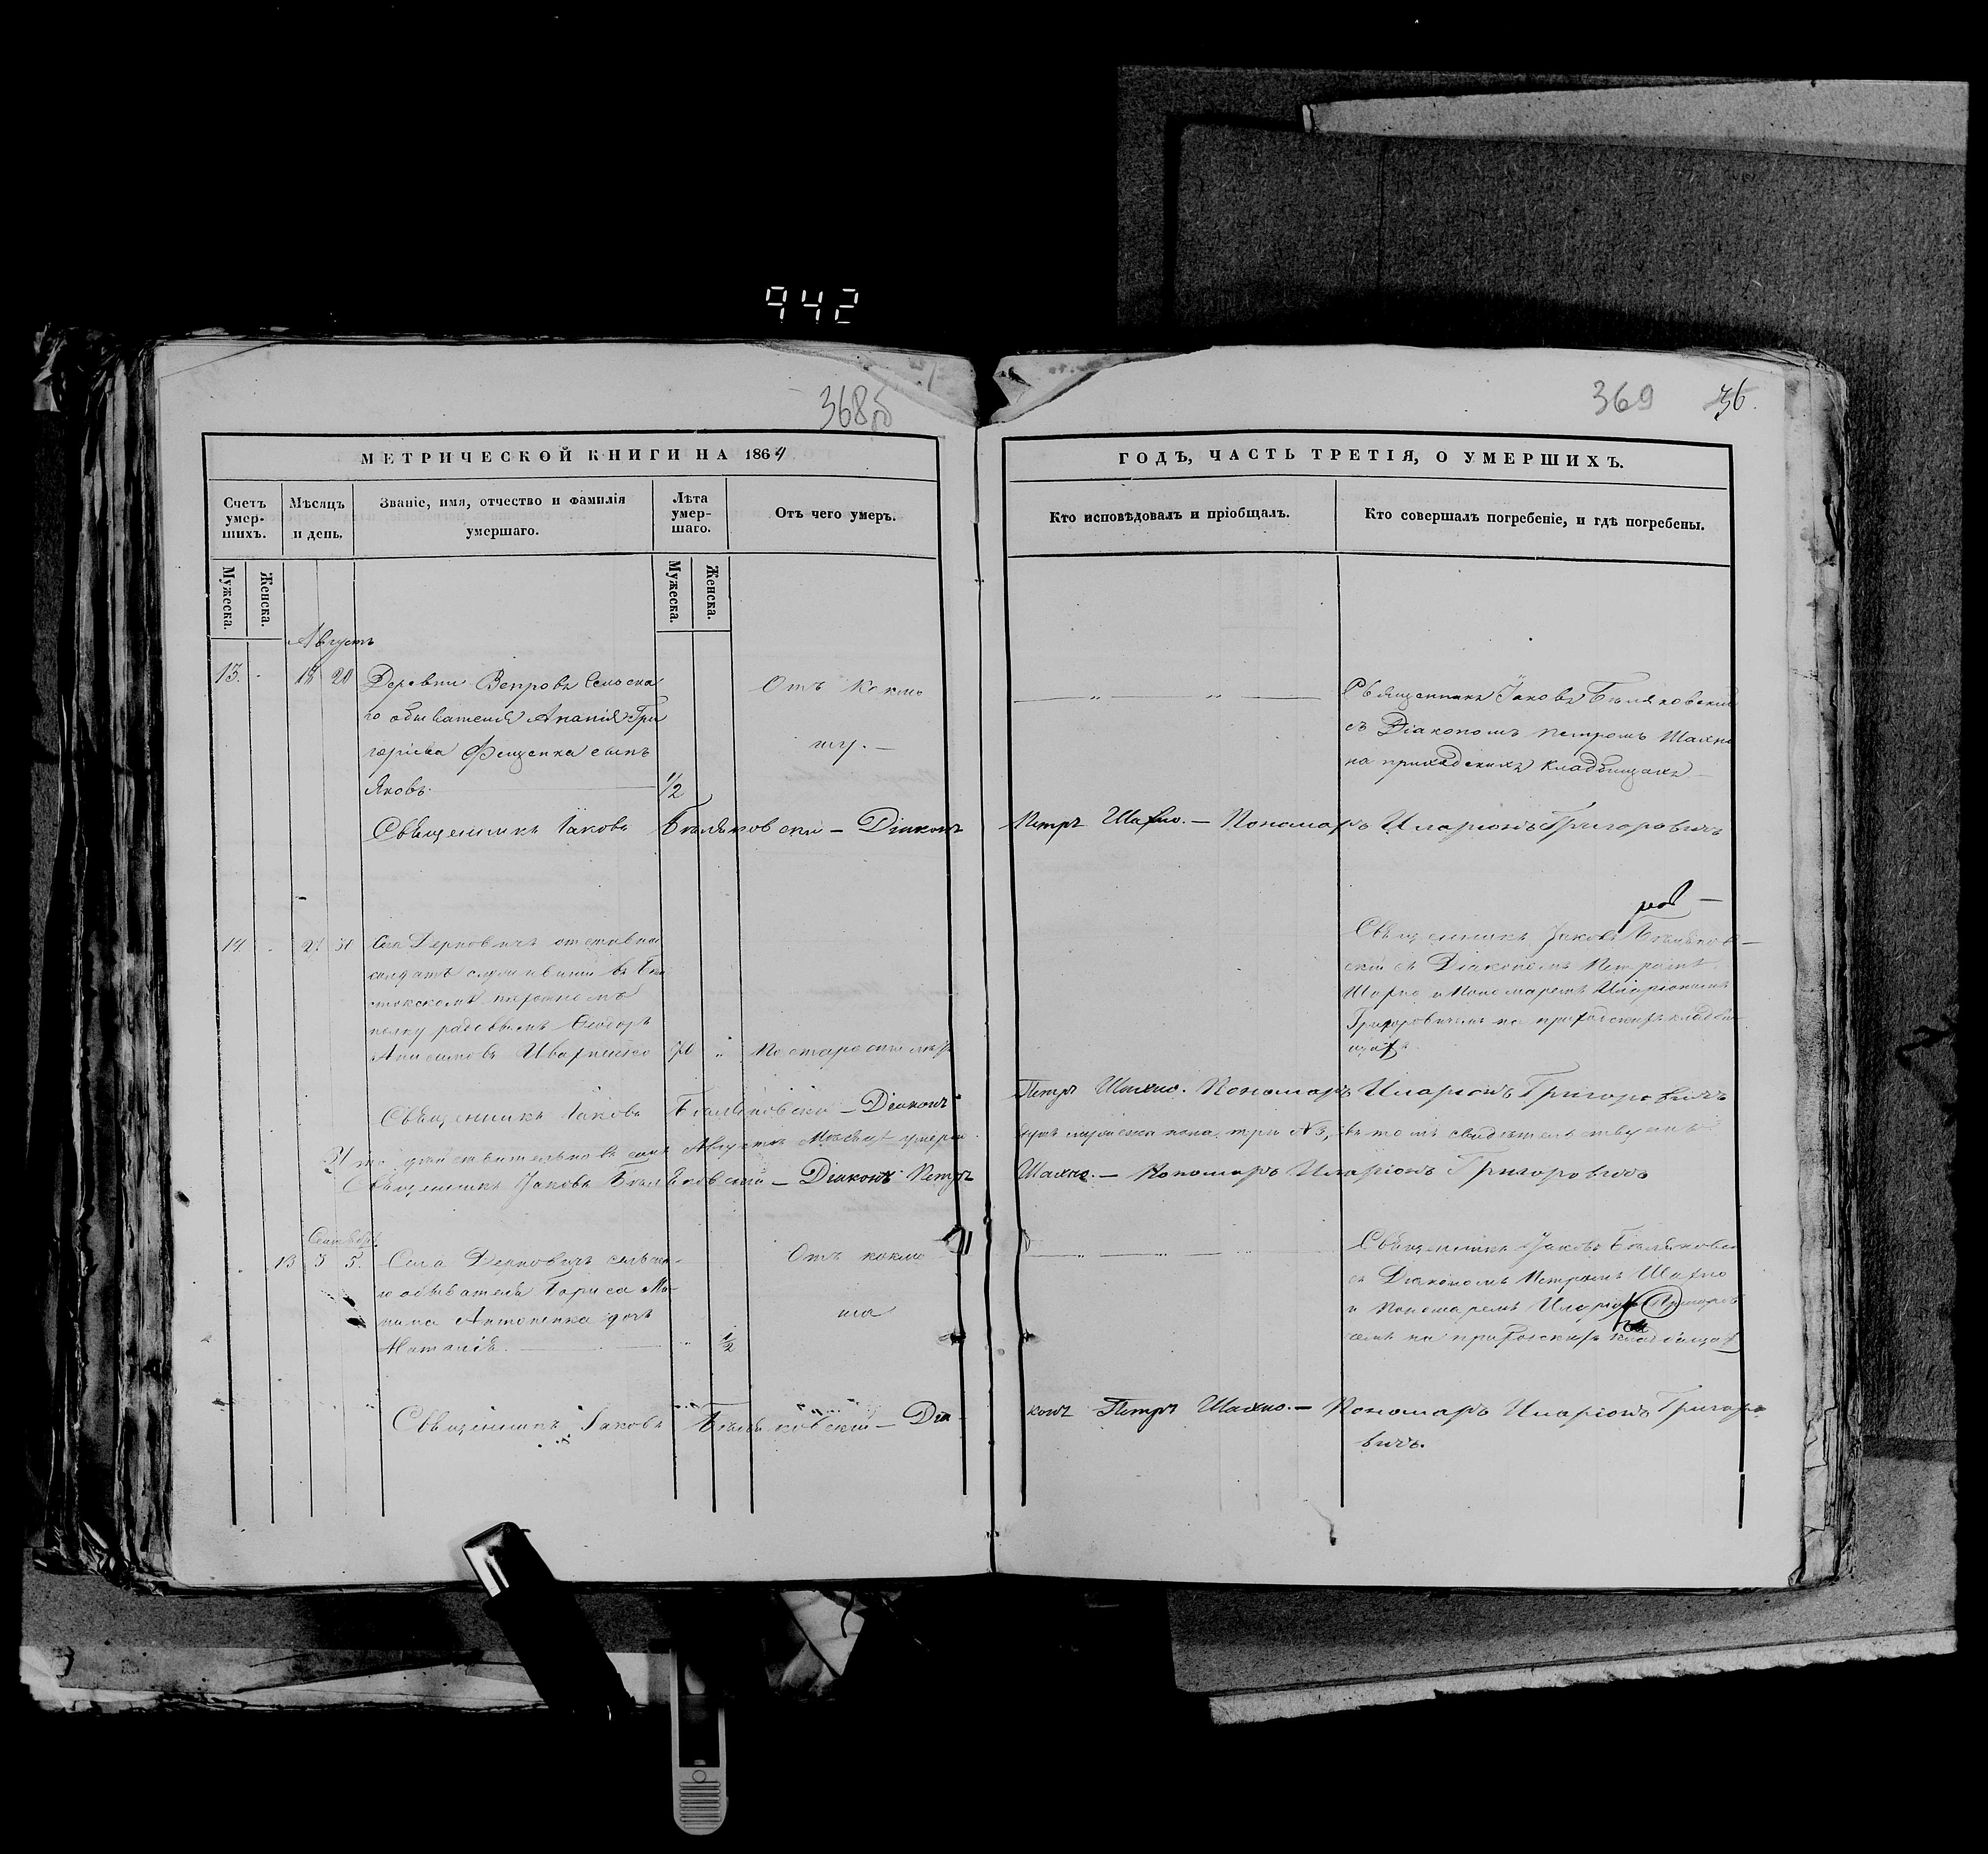 942
368об
369 36.
МЕТРИЧЕСКОЙ КНИГИ НА 1864
ГОДЪ, ЧАСТЬ ТРЕТІЯ, О УМЕРШИХЪ.
Счетъ умер-шихъ.
Мѣсяцъ и день.
Званіе, имя, отчество и фамилія умершаго.
Лѣта умер-шаго.
Отъ чего умеръ.
Кто исповѣдовалъ и пріобщалъ.
Кто совершалъ погребеніе, и гдѣ погребены.
Мужеска.
Женска.
Мужеска.
Женска.
Августъ
13. 18 20 Деревни Вепровъ Сельска
го обывателя Ананія Гри
горіева Фещенка сынъ
Яковъ 1/2
Отъ кокмо
шу. —
Священникъ Іаковъ Бѣляковскій
съ Діакономъ Петромъ Шахно
на приходскихъ кладбищахъ
Священникъ Іаковъ Бѣляковскій — Діаконъ Петръ Шахно. — Пономарь Иларіонъ Григоровичъ
14 27 31 Села Дерновичъ отставной
солдатъ служившій въ
полку рядовымъ Ѳеодоръ
70 По старости лѣтъ
Священникъ Іаковъ Бѣляков-
скій съ Діакономъ Петромъ
Шахно и Пономаремъ Иларіономъ
Григоровичемъ на приходскихъ кладби-
щахъ.
Священникъ Іаковъ Бѣляковскій — Діаконъ Петръ Шахно. Пономарь Иларіонъ Григоровичъ
Что дѣйствительно въ семъ Августѣ Мѣсяцѣ умерло мужеска пола три № 3, въ томъ свидѣтельствуемъ
Священникъ Іаковъ Бѣляковскій — Діаконъ Петръ Шахно. — Пономарь Иларіонъ Григоровичъ
Сентябрь
13 3 5. Села Дерновичъ сельска-
го обывателя Бориса
Антоненка дочь
Наталія. 1/2
Отъ кокмо
ша
Священникъ Іаковъ Бѣляковскій
съ Діакономъ Петромъ Шахно
и Пономаремъ Иларіономъ Григорови
чемъ на приходскихъ кладбищахъ
Священникъ Іаковъ Бѣляковскій — Діа
конъ Петръ Шахно. — Пономарь Иларіонъ Григоро
вичъ.